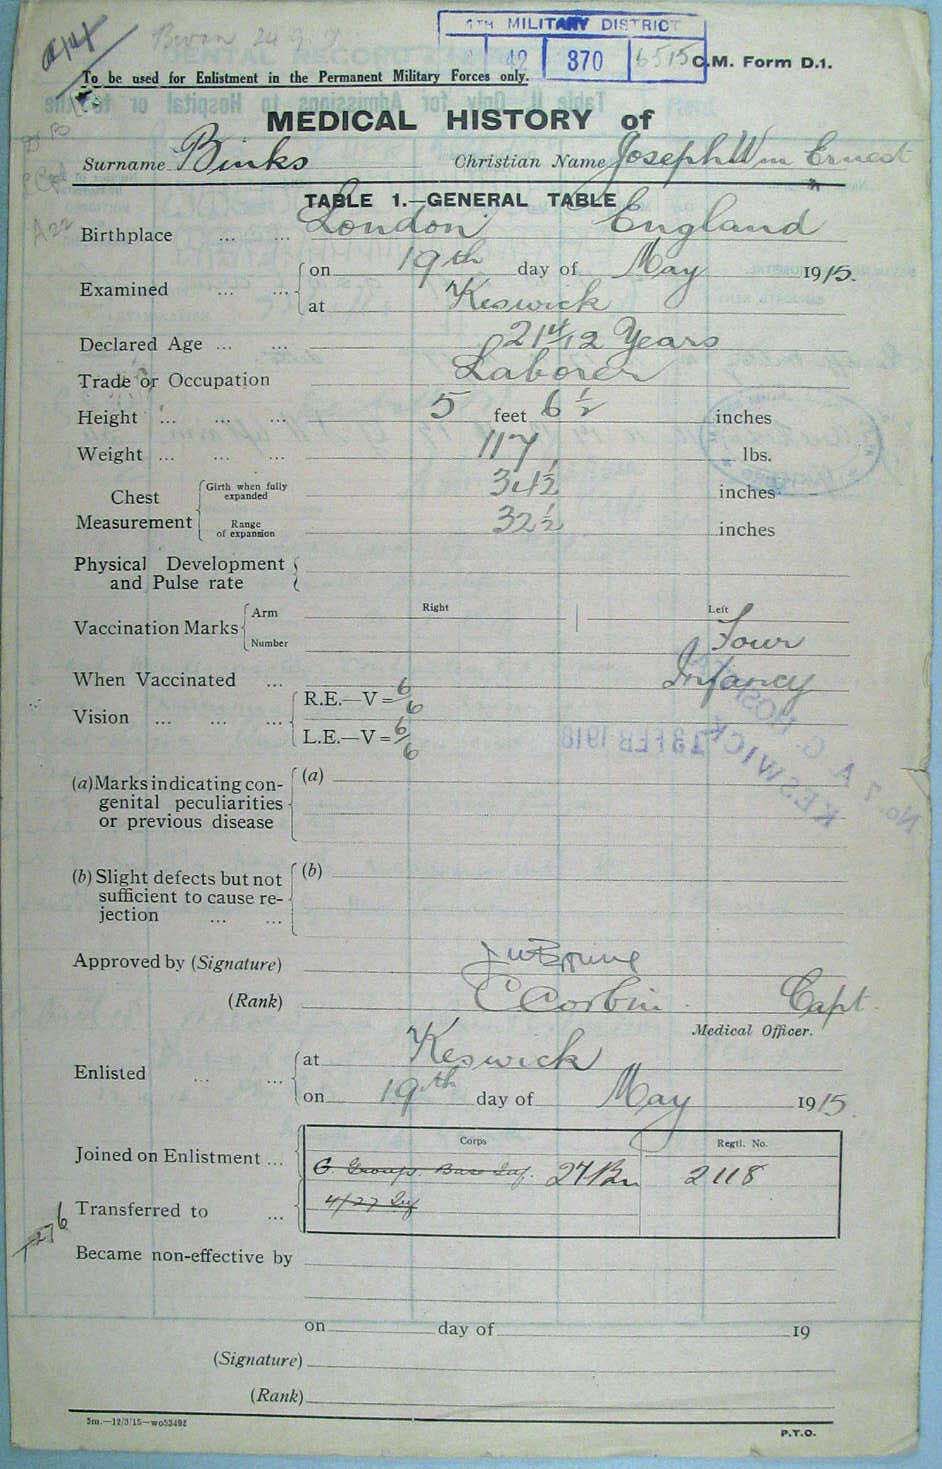 4TH MILITARY DISTRICT
42 370 6515
C.M. Form D.1.
To be used for Enlistment in the Permanent Military Forces only.
MEDICAL HISTORY of
Surname Binks Christian Name Joseph Wm Ernest
TABLE 1.—GENERAL TABLE
Birthplace ... ... London England
Examined ... ... on 19th day of May 1915.
at Keswick
Declared Age ... ... 21 4/12 Years
Trade or Occupation Laborer
Height ... ... ... 5 feet 6 ½ inches
Weight ... ... ... 117 lbs.
Chest Measurement Girth when fully expanded 34½ inches
Range of expansion 32½ inches
Physical Development and Pulse rate
Vaccination Marks Arm Right Left
Number Four
When Vaccinated ... Infancy
Vision ... ... ... R.E.—V = 6/6
L.E.—V = 6/6
13 FEB 1918
KESWICK
(a) Marks indicating con- (a)
genital peculiarities
or previous disease
(b) Slight defects but not (b)
sufficient to cause re-
jection ... ...
Approved by (Signature)
(Rank) C Corbin Capt.
Medical Officer.
Enlisted ... ... at Keswick
on 19th day of May 1915.
Corps Regtl. No.
Joined on Enlistment ... G. Groups. Base Inf. 27 Bn 2118
4/27 Inf
Transferred to ...
Became non-effective by
on day of 19
(Signature)
(Rank)
5m.—12/3/15—wo53492
P.T.O.